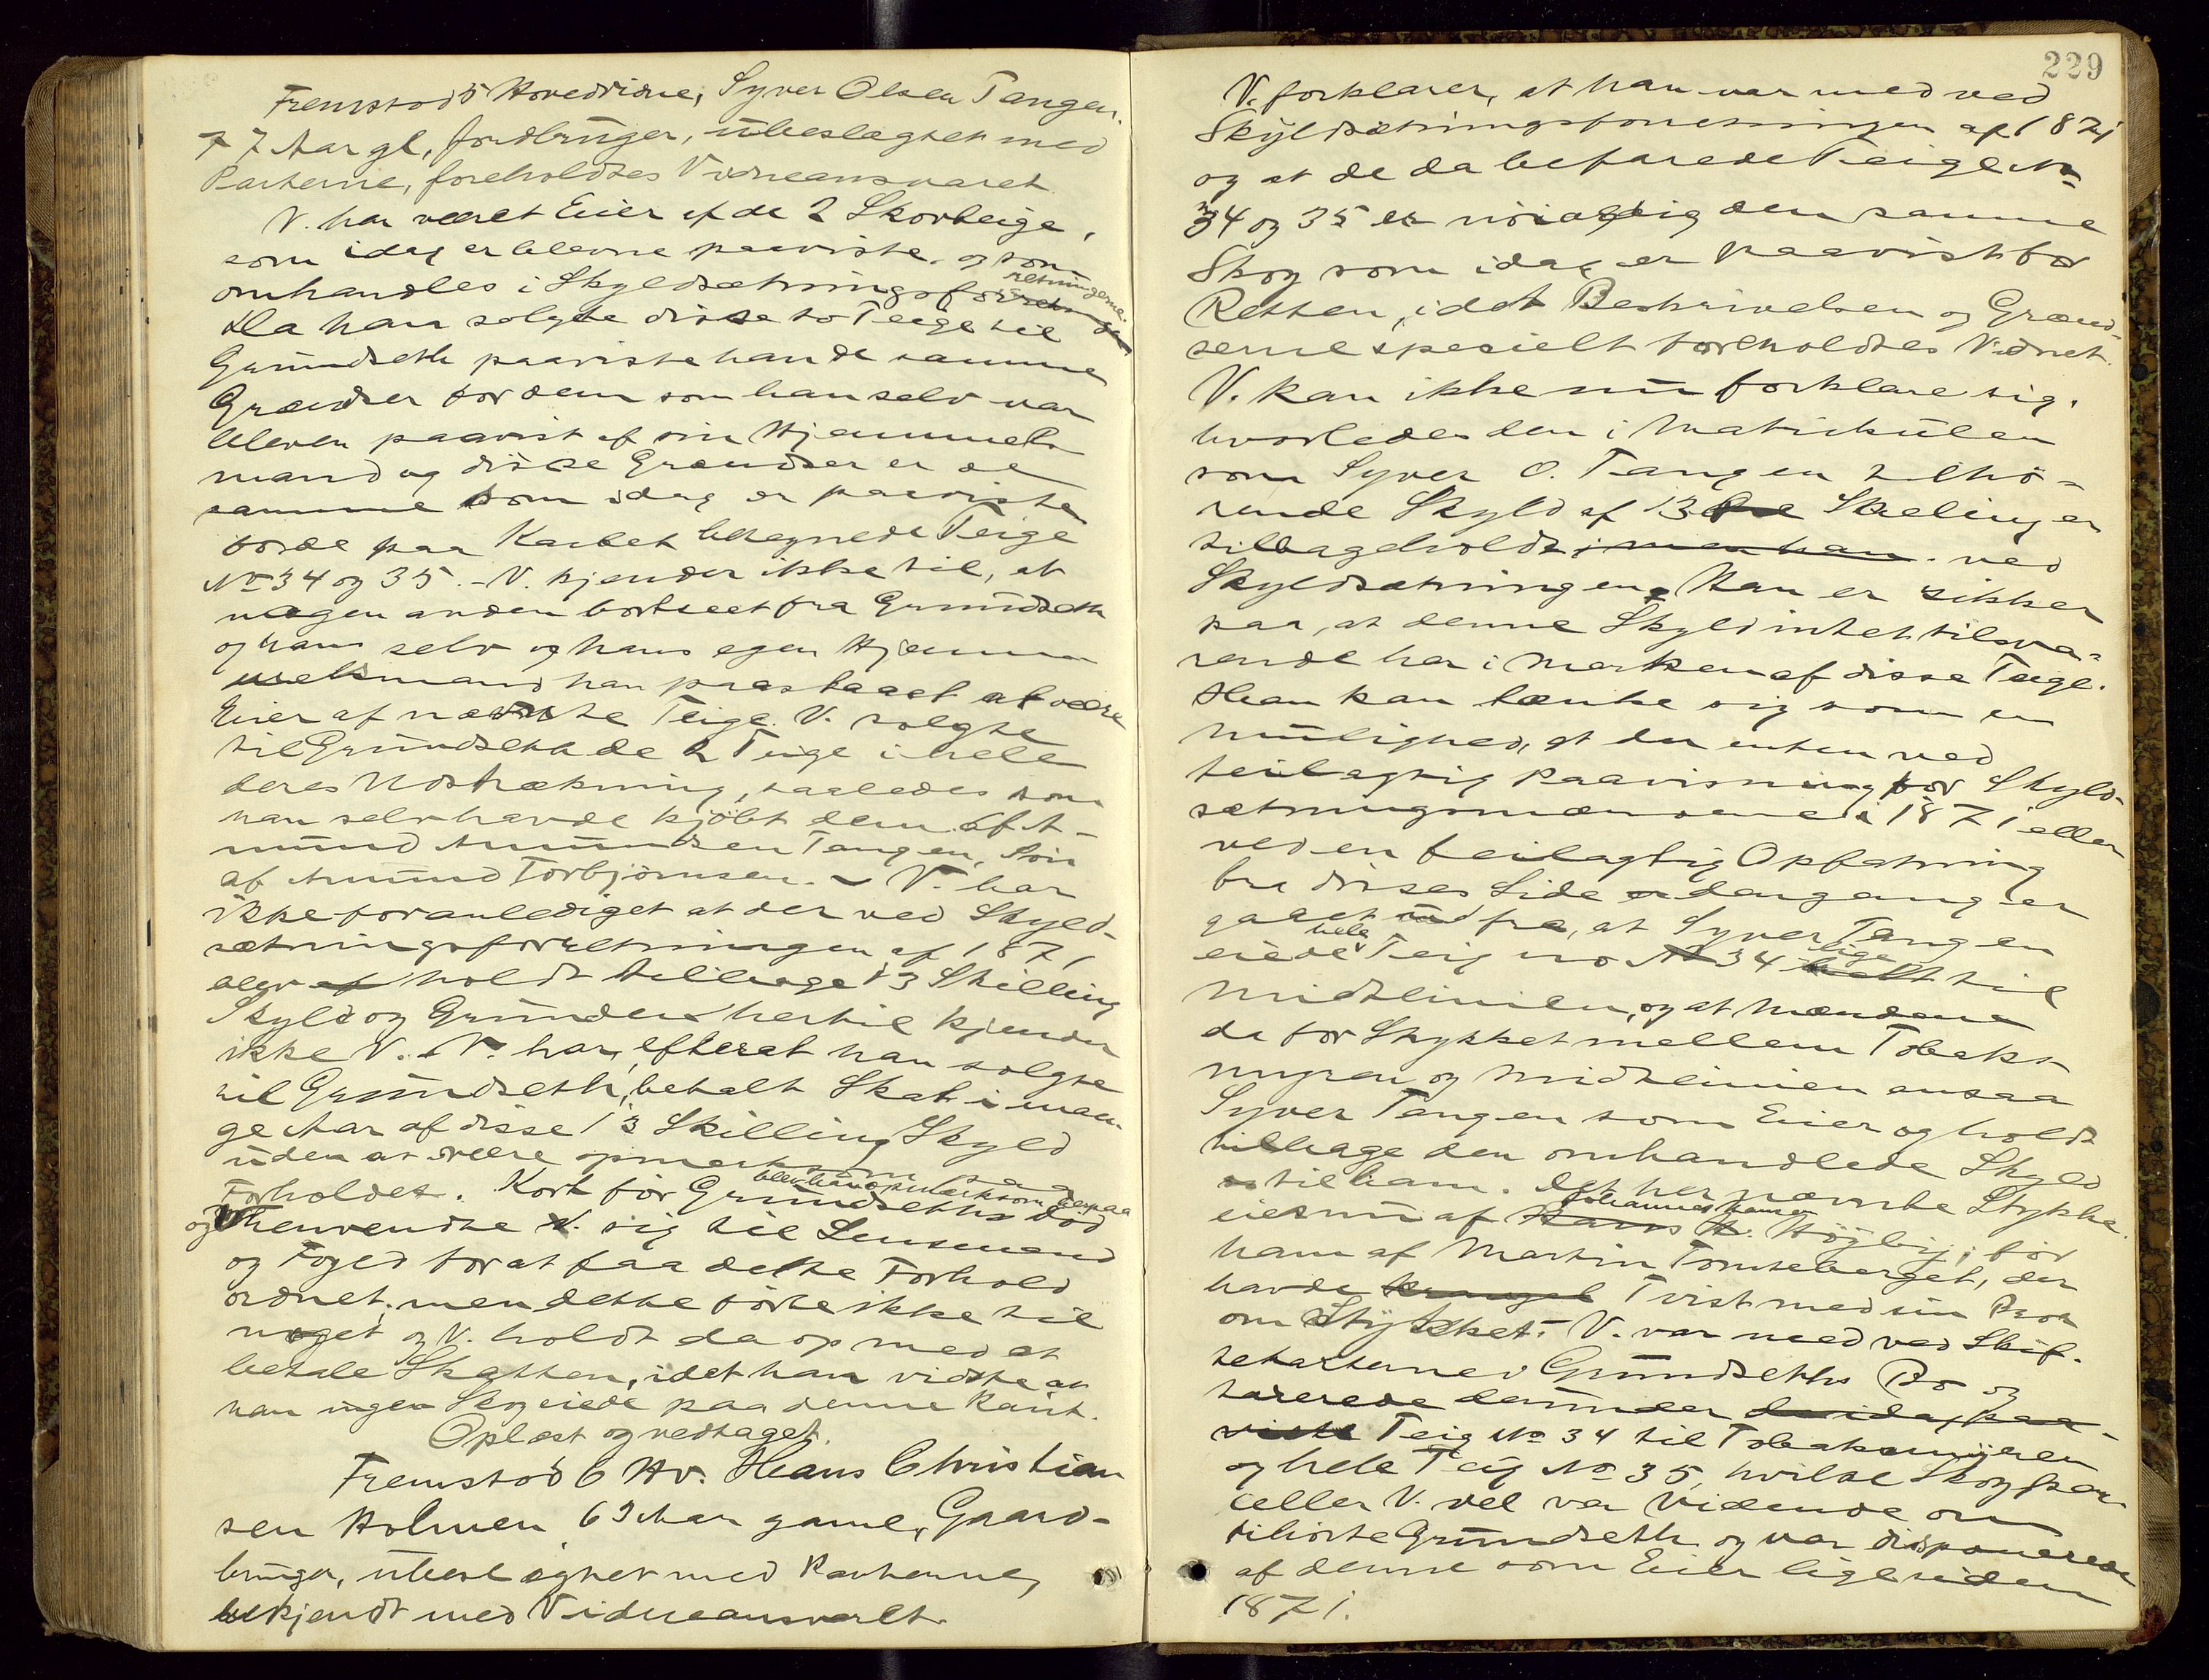 Fremstod 5 Hovedvidne, Syver Olsen Tangen
77 Aar gl., Jordbruger, ubeslægtet med
Parterne, foreholdtes Vidneansvaret.
V. har været Eier af de 2 Skovteige,
som idag er blevne paaviste og som
omhandles i Skyldsætningsforretningerne.
Da han solgte disse to Teige til
Grundseth paaviste han de samme
Grændser for dem som han selv var
bleven paavist af sin Hjemmels
mand og disse Grændser er de
samme som idag er paaviste
for de paa Kartet betegnede Teige
No 34 og 35. - V. kjender ikke til, at
nogen anden bortseet fra Grundseth
og ham selv og hans egen Hjem
melsmand har paastaaet at være
Eier af nævnte Teige. V. solgte
til Grundseth de 2 Teige i hele
deres Udstrækning, saaledes som
han selv havde kjöbt dem af A-
mund Amundsen Tangen, Sön
af Amund Torbjörnsen. - V. har
ikke foranlediget at der ved Skyld-
sætningsforretningen af 1871
blev af holdt tilbage 13 Skilling
Skyld og Grunden hertil kjender
ikke V. V. har, efterat han solgte
til Grundseth, betalt Skat i man-
ge Aar af disse 13 Skilling Skyld
uden at være opmerksom paa
Forholdet. Kort för Grundseths Död
blev han opmerksom derpaa
og henvendte V. sig til Lensmand
og Foged for at faa dette Forhold
ordnet, men dette förte ikke til
noget og V. holdt da op med at
betale Skatten, idet han vidste at
han ingen Skog eiede paa denne Kant.
Oplæst og vedtaget.
Fremstod 6 Hv. Hans Christian
sen Holmen 69 Aar gamel, Gaard-
bruger, ubeslægtet med Parterne,
bekjendt med Vidneansvaret.
229
V. forklarer, at han var med ved
Skyldsætningsforretningen af 1871
og at de da befarede Teige No
34 og 35 er nöiagtig den samme
Skog som idag er paavist for
Retten, idet Beskrivelsen og Grænd-
serne specielt foreholdtes Vidnet.
V. kan ikke nu forklare sig,
hvorledes den i Matrikulen
som Syver O. Tangen tilhö-
rende Skyld af 13 Skilling er
tilbageholdt men han ved
Skyldsætningen. Han er sikker
paa, at denne Skyld intet tilsva-
rende har i Marken af disse Teige.
Han kan tænke sig som en
mulighed, at der enten ved
feilagtig Paavisning for Skyld-
sætningsmændene i 1871 eller
ved en feilagtig Opfatning
fra disses Side dengang er
gaaet ud fra, at Syver Tangen
eiede hele Teig no 34 lige til
Midtlinien, og at Mændene
da for Stykket mellem Tobaks-
myren og Midtlinien ansaa
Syver Tangen som Eier og holdt
tilbage den omhandlede Skyld
til ham. Det her nævnte Stykke
eies nu af Johannes Hansen Höyby, för
ham af Martin Tomteberget, der
havde Trangel Tvist med sin Bror
om Stykket. V. var med ved Skif-
tetaxterne i Grundseths Bo og
taxerede derunder de idag paa-
viste Teig No 34 til Tobaksmyren
og hele Teig No 35, hvilke Skogpar-
celler V. vel var Vidende om
tilhörte Grundseth og var disponerede
af denne som Eier ligesiden
1871.